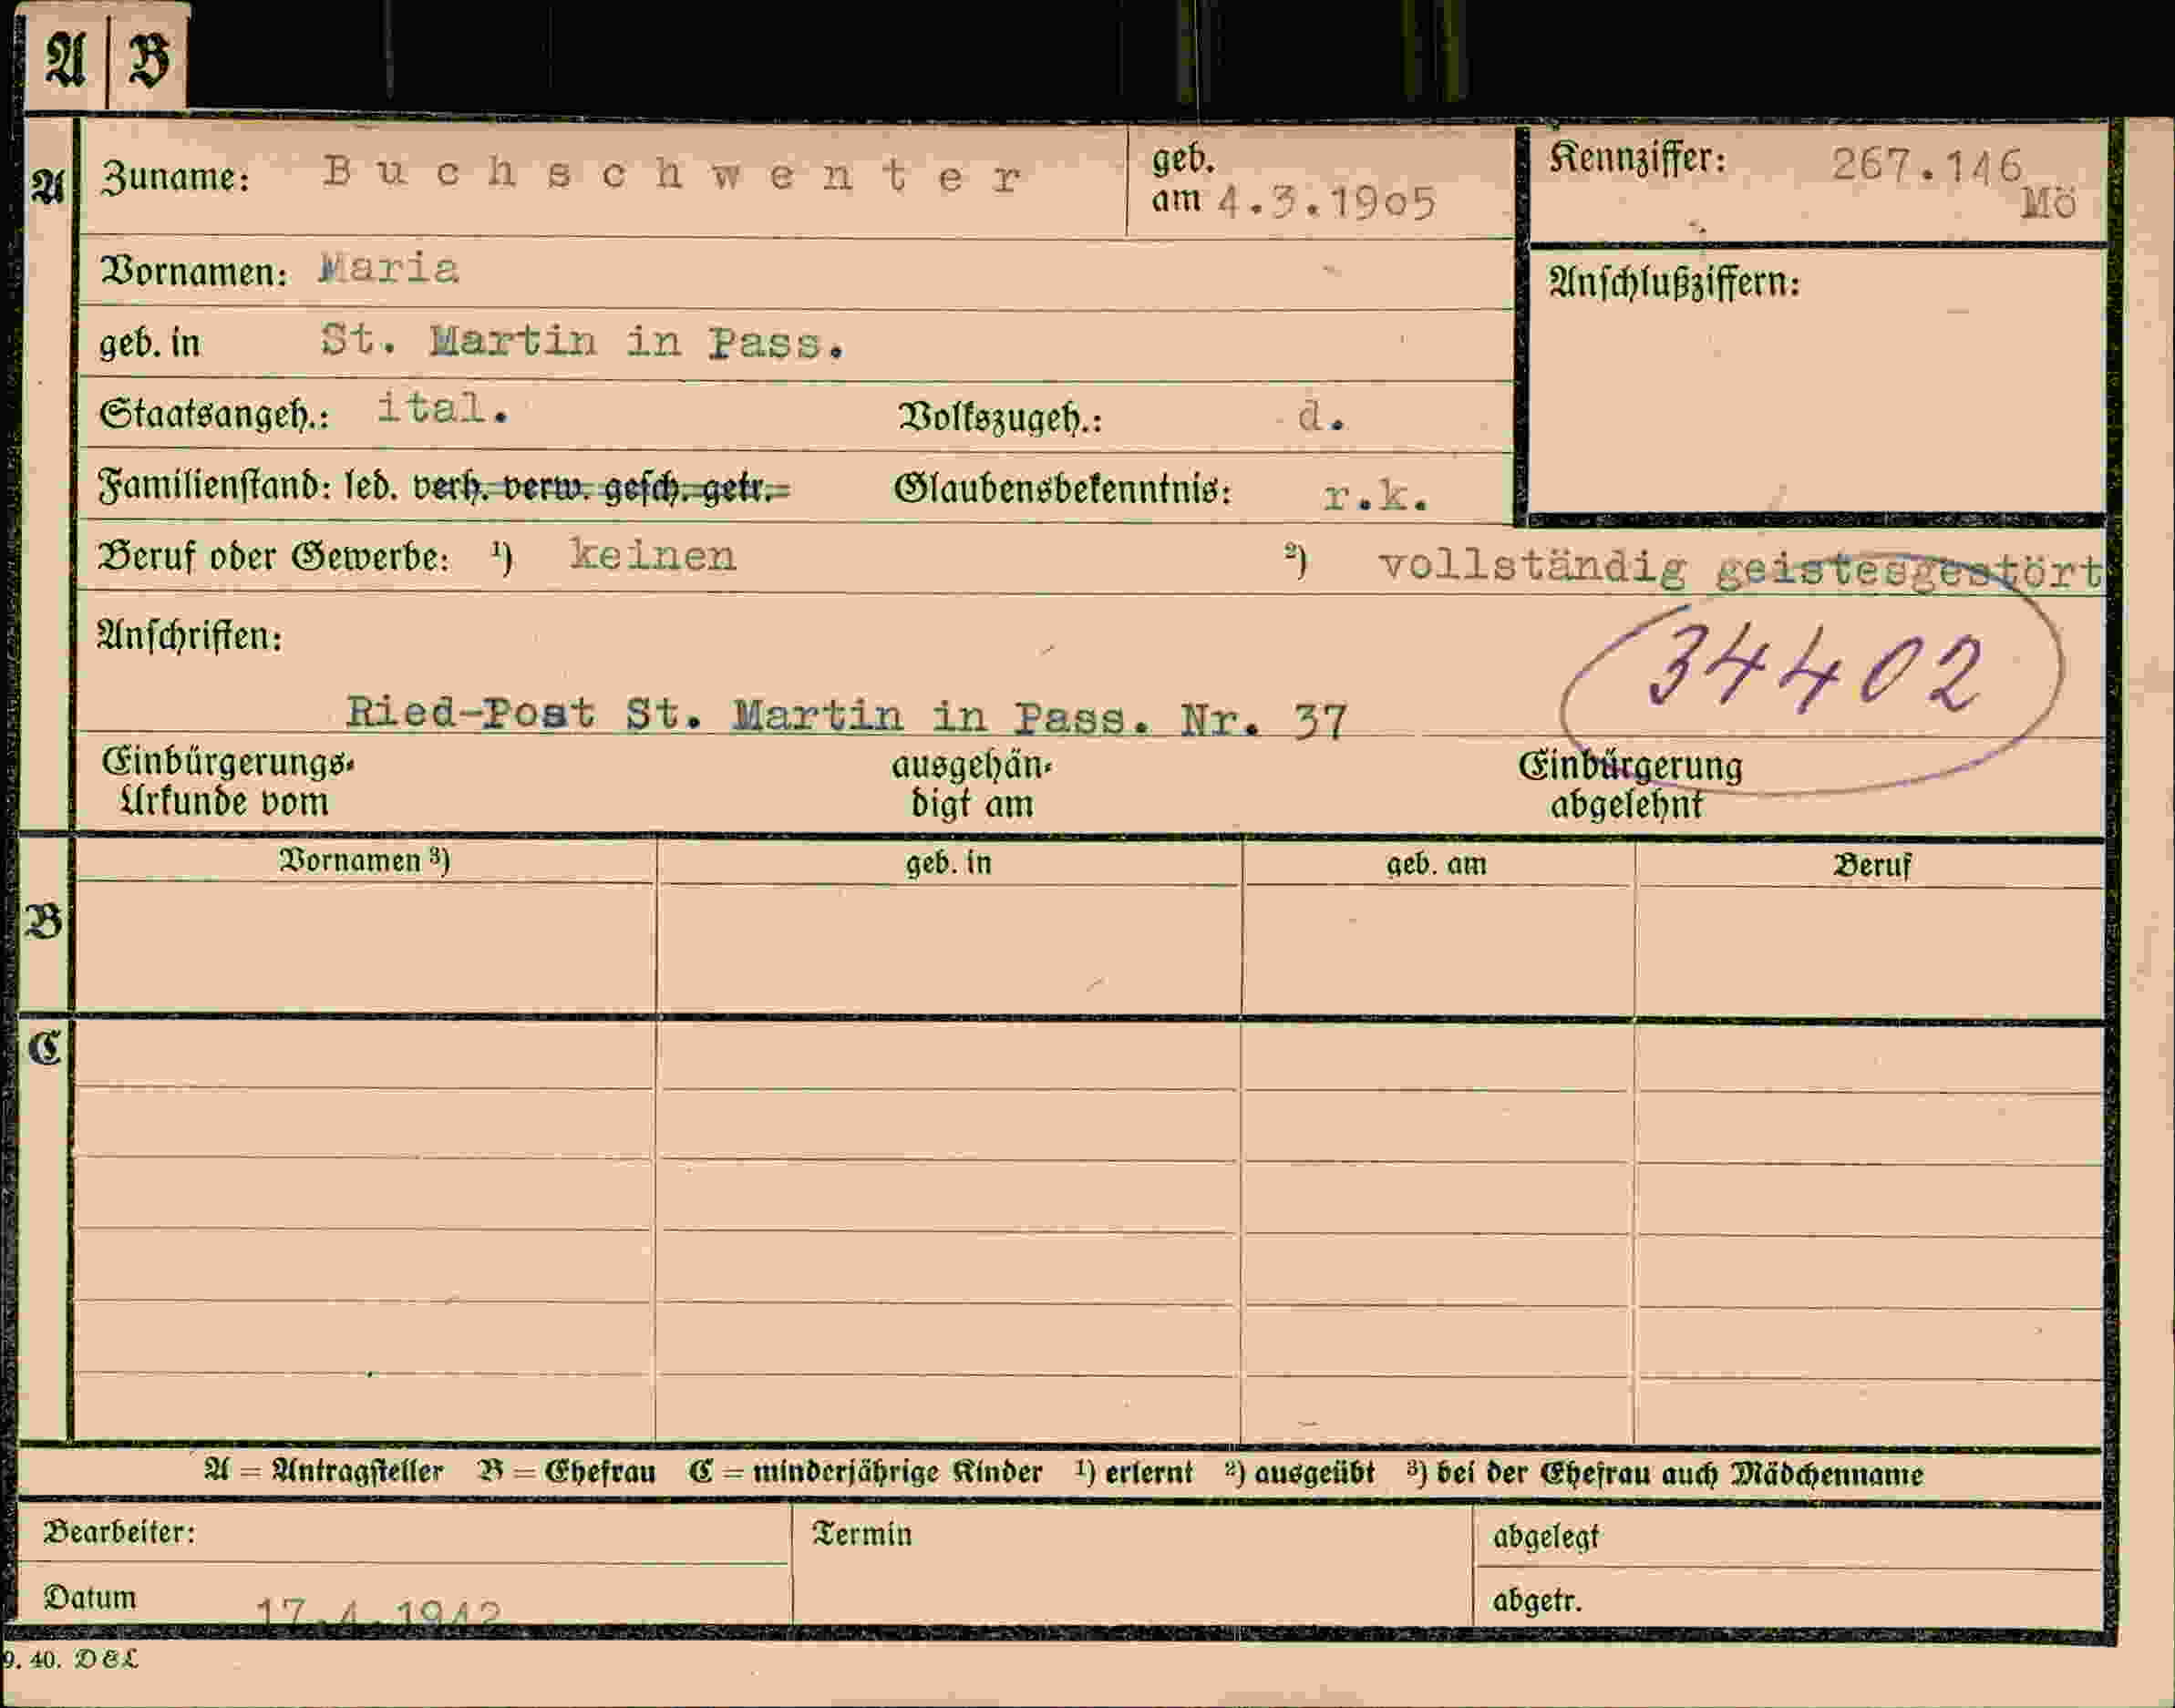 A B
A Zuname: Buchschwenter geb. am 4.3.1905 Kennziffer: 267.146 Mö
Vornamen: Maria Anschlußziffern:
geb. in St. Martin in Pass.
Staatsangeh.: ital. Volkszugeh.: d.
Familienstand: led. verh. verw. gesch. getr. Glaubensbekenntnis: r.k.
Beruf oder Gewerbe: ¹) keinen ²) vollständig geistesgestört
Anschriften:
34402
Ried-Post St. Martin in Pass. Nr. 37
Einbürgerungs- ausgehän- Einbürgerung
Urkunde vom digt am abgelehnt
Vornamen ³) geb. in geb. am Beruf
B
C
A = Antragsteller B = Ehefrau C = minderjährige Kinder ¹) erlernt ²) ausgeübt ³) bei der Ehefrau auch Mädchenname
Bearbeiter: Termin abgelegt
Datum 17.4.1942 abgetr.
9. 40. DEL